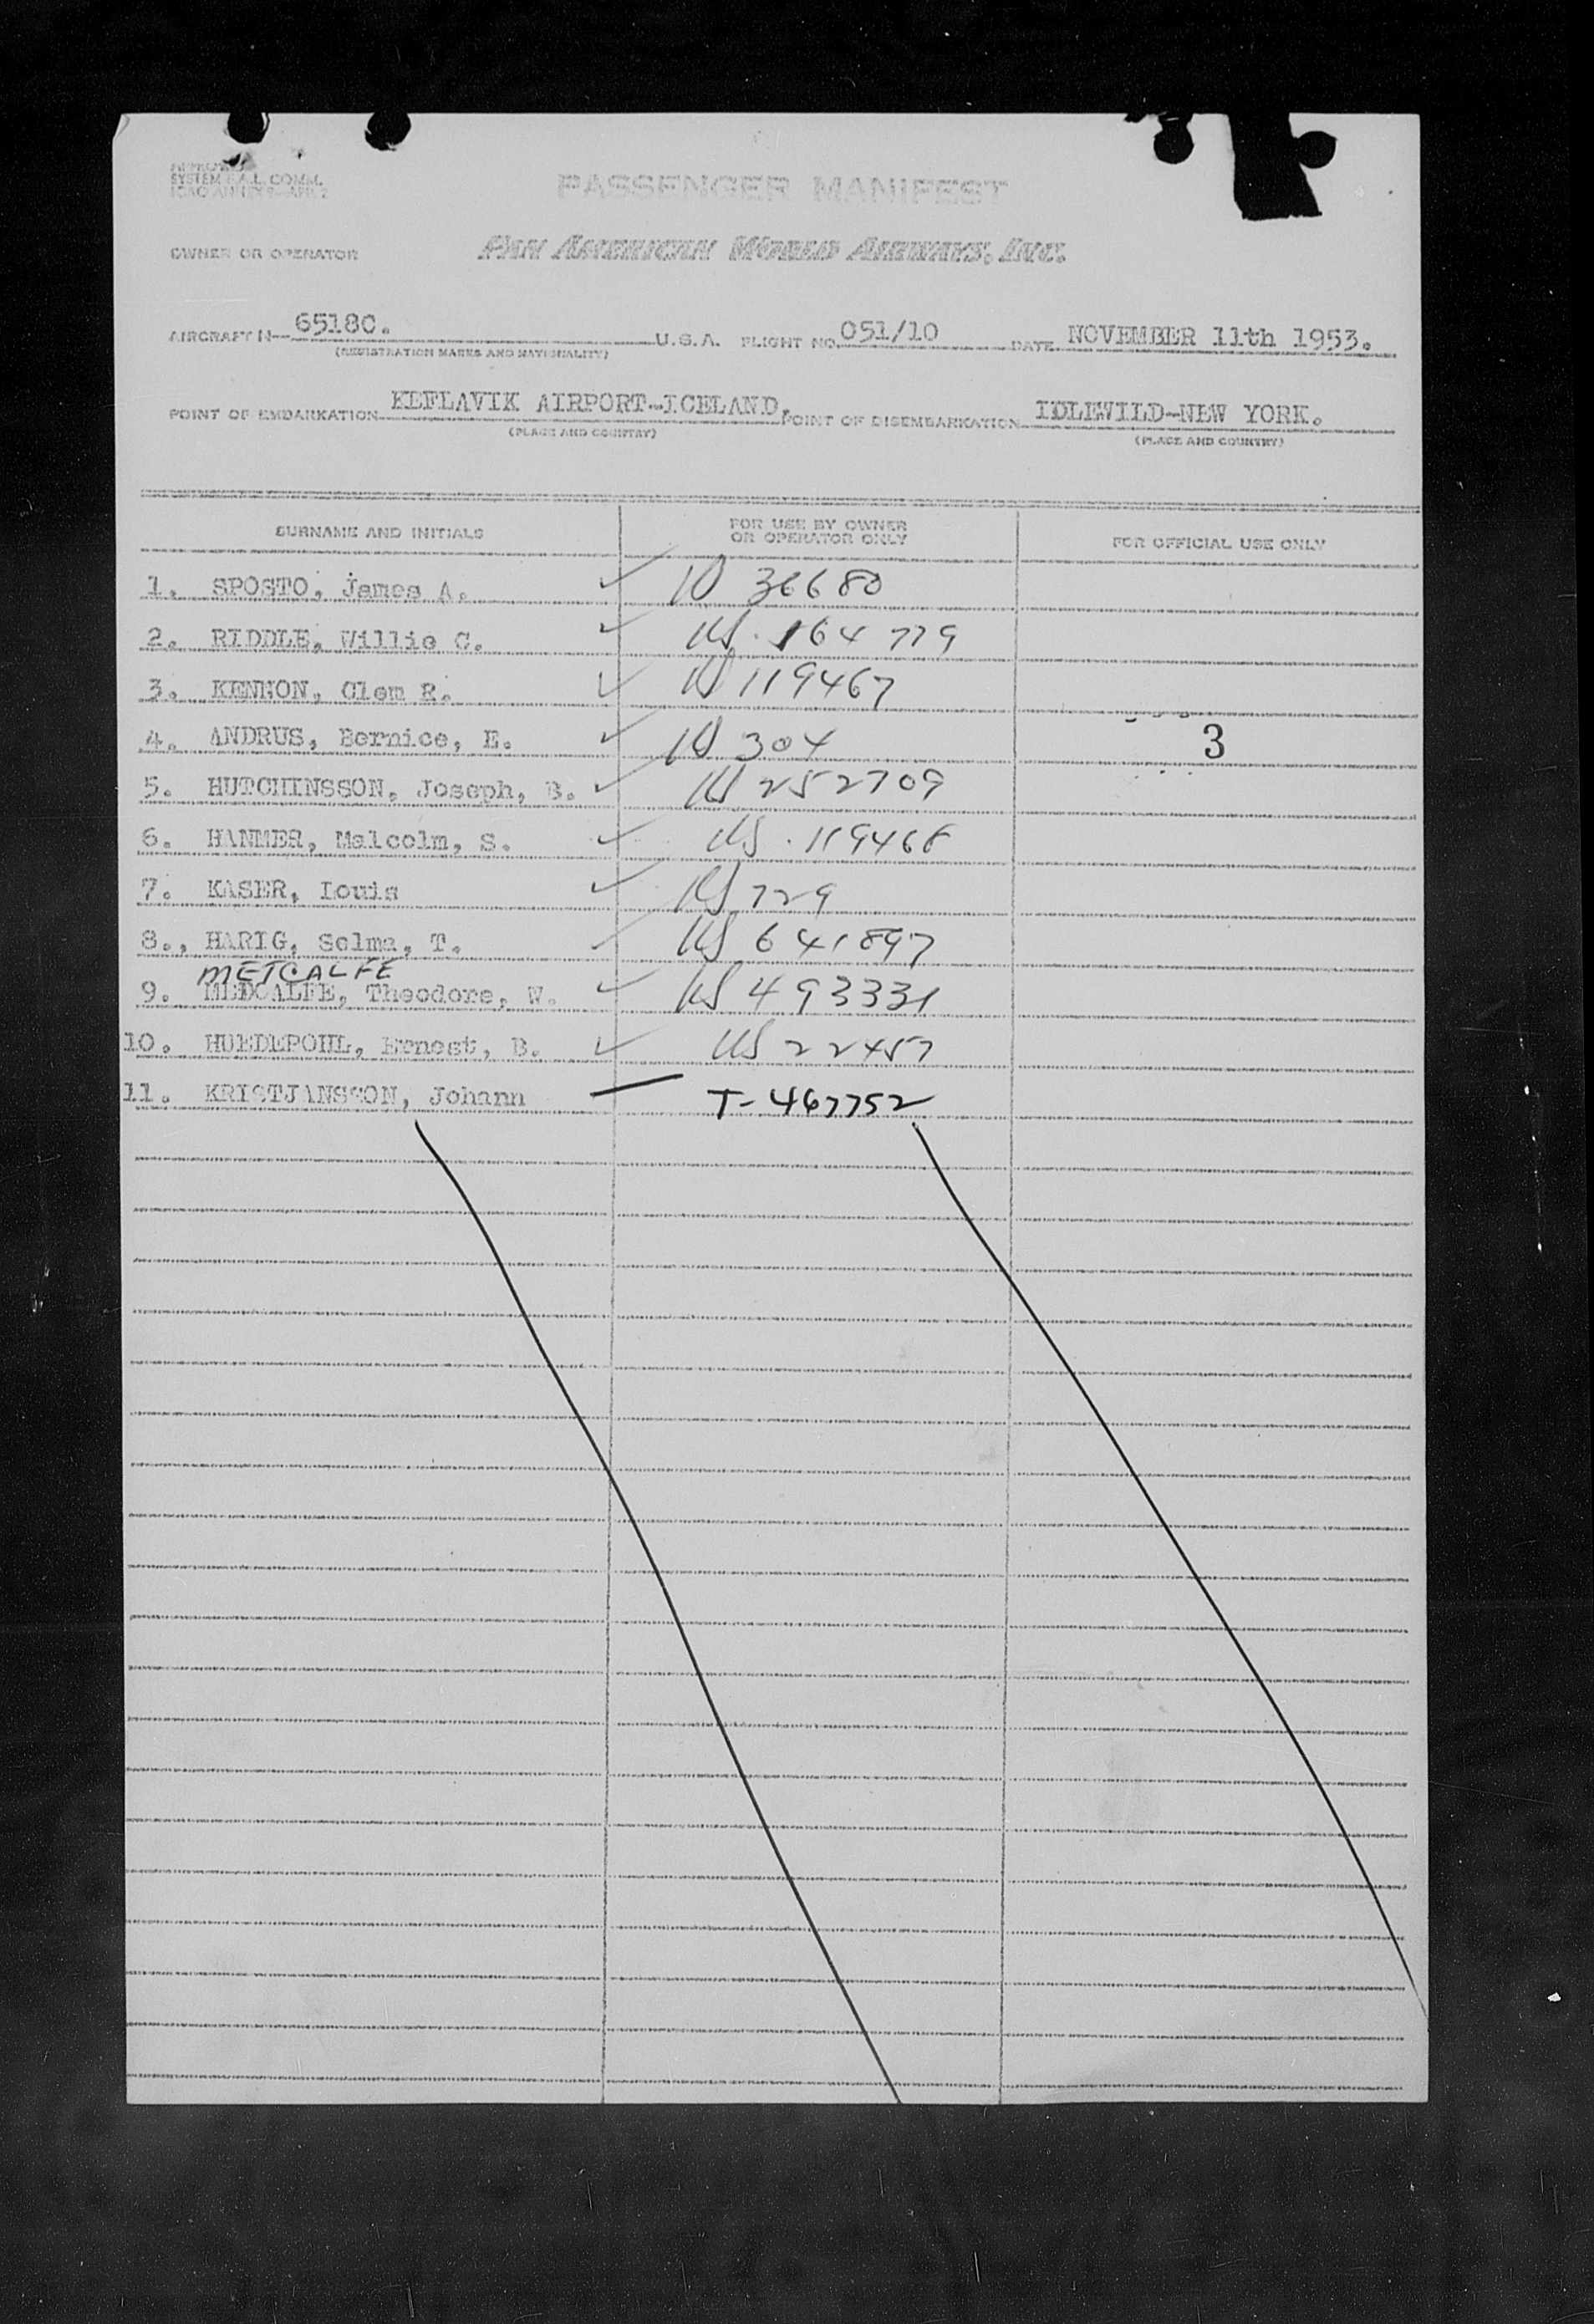 APPROVED
SYSTEM F.A.L. COMM.
ICAO ANNEX 9-APP. 2
PASSENGER MANIFEST
OWNER OR OPERATOR PAN AMERICAN WORLD AIRWAYS, INC.
AIRCRAFT N- 6518C. U.S.A. FLIGHT NO. 051/10 DATE NOVEMBER 11th 1953.
(REGISTRATION MARKS AND NATIONALITY)
POINT OF EMBARKATION KEFLAVIK AIRPORT-ICELAND, POINT OF DISEMBARKATION IDLEWILD-NEW YORK.
(PLACE AND COUNTRY) (PLACE AND COUNTRY)
SURNAME AND INITIALS FOR USE BY OWNER OR OPERATOR ONLY FOR OFFICIAL USE ONLY
1. SPOSTO, James A. ✓ US 36680
2. RIDDLE, Willie C. ✓ US. 164 779
3. KENNON, Clem R. ✓ US 119467
4. ANDRUS, Bernice, E. ✓ US 304 3
5. HUTCHINSSON, Joseph, B. ✓ US 252709
6. HANMER, Malcolm, S. ✓ US. 119468
7. KASER, Louis ✓ US 729
8., HARIG, Selma, T. ✓ US 641897
METCALFE
9. MEDCALFE, Theodore, W. ✓ US 493331
10. HUEDEPOHL, Ernest, B. ✓ US 22457
11. KRISTJANSSON, Johann — T- 467752